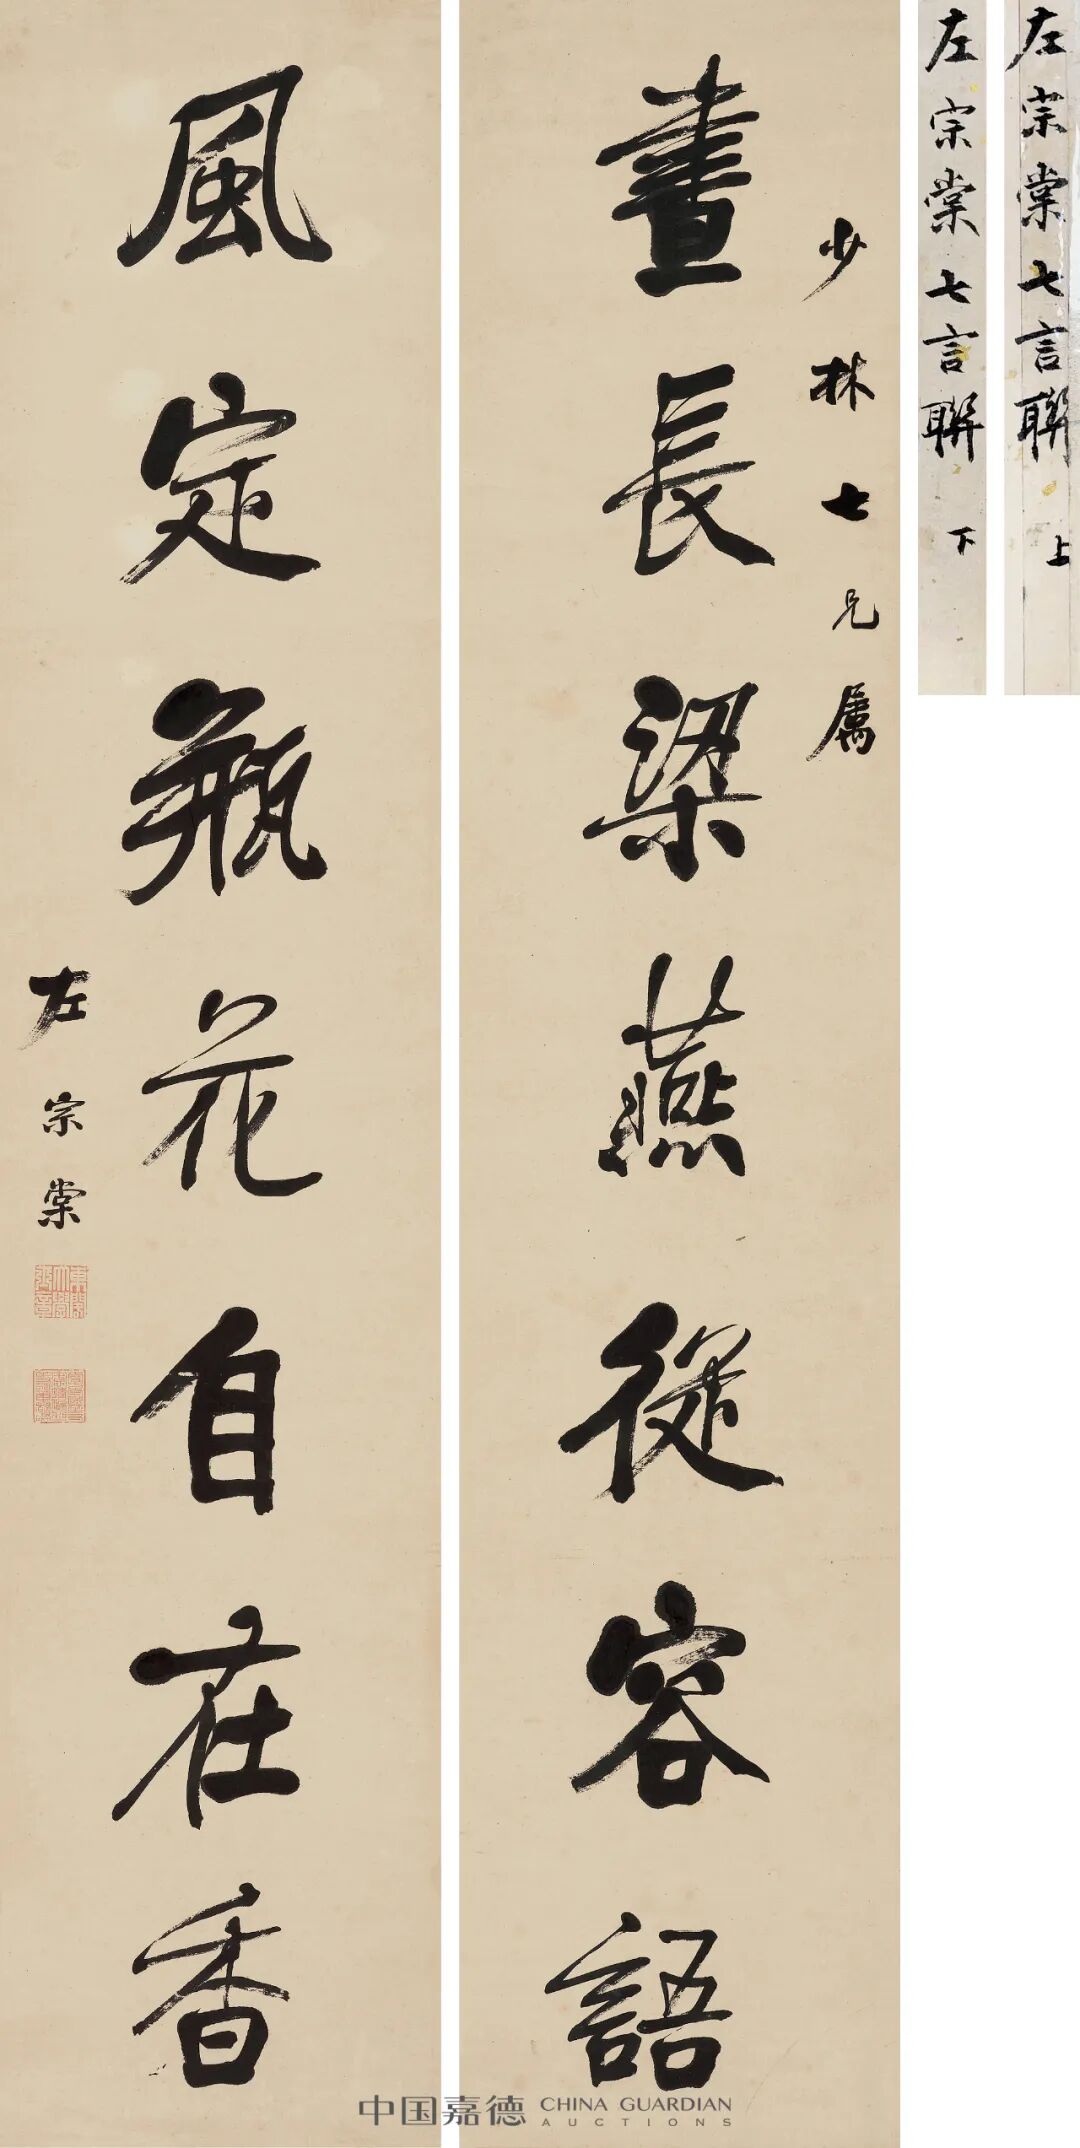 左宗棠七言聯 上
左宗棠七言聯 下
少林七兄属
晝長梁燕從容語
風定瓶花自在香
左宗棠
東閣大學士章
中国嘉德 CHINA GUARDIAN
AUCTIONS